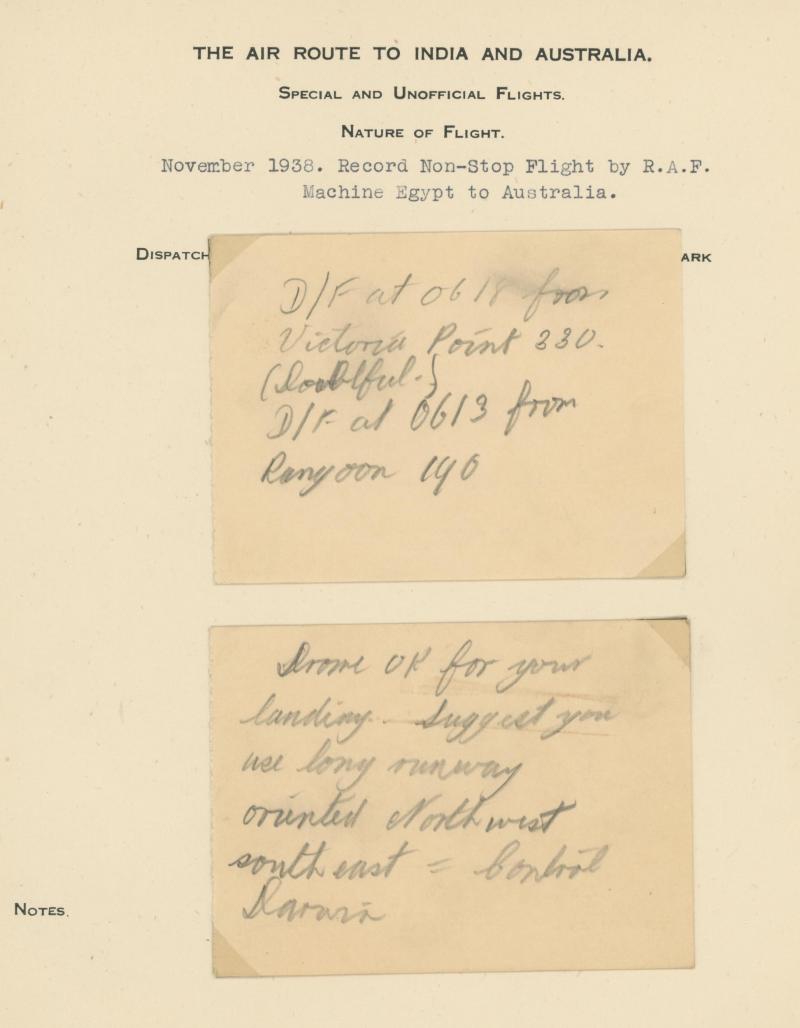 THE AIR ROUTE TO INDIA AND AUSTRALIA.
SPECIAL AND UNOFFICIAL FLIGHTS.
NATURE OF FLIGHT.
November 1938. Record Non-Stop Flight by R.A.F.
Machine Egypt to Australia.
DISPATCH ARK
D/F at 0618 from
Victoria Point 330.
(Doubtful.)
D/F at 0613 from
Rangoon 190
Drome OK for your
landing. Suggest you
use long runway
oriented North west
south east = Control
Darwin
NOTES.